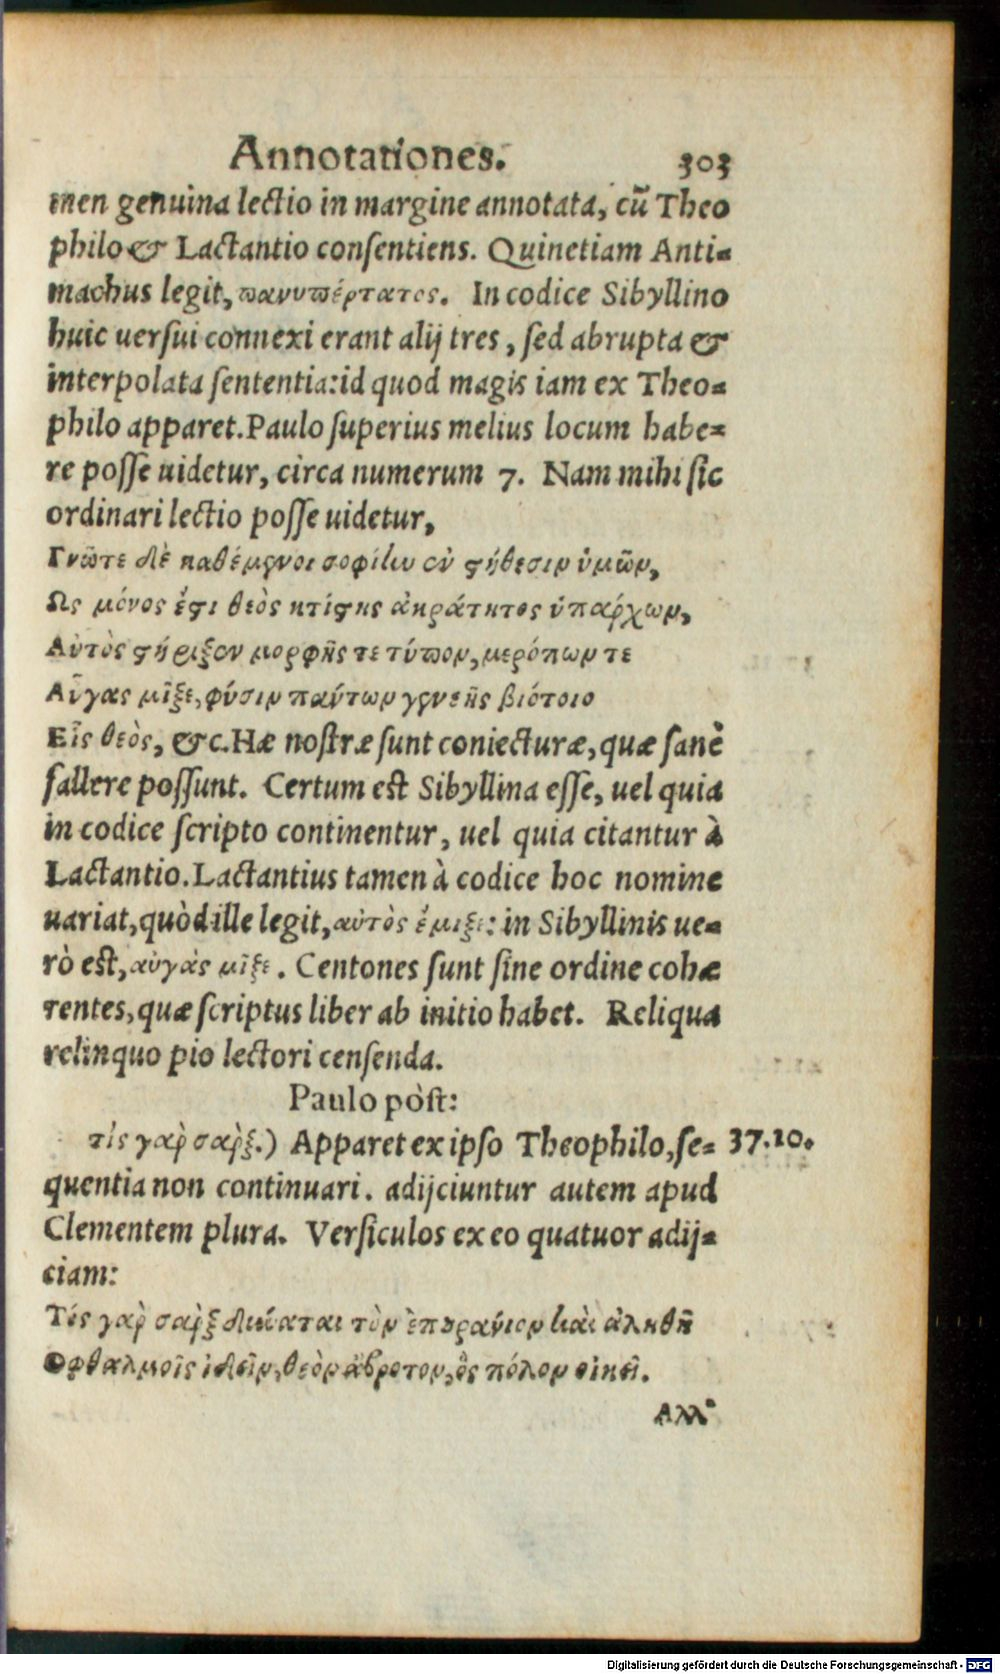 Annotationes. 303
men genuina lectio in margine annotata, cũ Theo
philo & Lactantio consentiens. Quinetiam Anti-
machus legit, πανυπέρτατος. In codice Sibyllino
huic uersui connexi erant alij tres, sed abrupta &
interpolata sententia: id quod magis iam ex Theo-
philo apparet. Paulo superius melius locum habe-
re posse uidetur, circa numerum 7. Nam mihi sic
ordinari lectio posse uidetur,
Γνῶτε δὲ καθέμενοι σοφίην ἐν στήθεσιν ὑμῶν,
Ως μόνος ἔστι θεὸς κτίστης ἀκράτητος ὑπάρχων,
Αὐτὸς στήριξεν μορφῆς τε τύπον, μερόπων τε
Αὖγας μῖξε, φύσιν πάντων γενεῆς βιότοιο
Εἷς θεὸς, &c. Hæ nostræ sunt coniecturæ, quæ sanè
fallere possunt. Certum est Sibyllina esse, uel quia
in codice scripto continentur, uel quia citantur à
Lactantio. Lactantius tamen à codice hoc nomine
uariat, quòd ille legit, αὐτὸς ἔμιξε: in Sibyllinis ue-
rò est, αὐγὰς μῖξε. Centones sunt sine ordine cohæ
rentes, quæ scriptus liber ab initio habet. Reliqua
relinquo pio lectori censenda.
Paulo pòst:
τίς γὰρ σὰρξ.) Apparet ex ipso Theophilo, se- 37.10.
quentia non continuari. adijciuntur autem apud
Clementem plura. Versiculos ex eo quatuor adij-
ciam:
Τίς γὰρ σὰρξ δύναται τὸν ἐπουράνιον καὶ ἀληθῆ
Οφθαλμοῖς ἰδεῖν, θεὸν ἄβροτον, ὃς πόλον οἰκεῖ.
Αλλ'
Digitalisierung gefördert durch die Deutsche Forschungsgemeinschaft - DFG